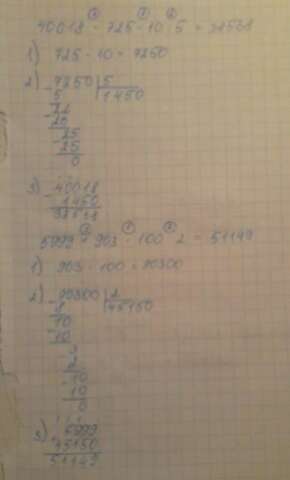 40018 - 725 · 10 : 5 = 38568
1) 725 · 10 = 7250
2) 7250 | 5
5 | 1450
22
20
25
25
0
3) 40018
1450
38568
5999 + 903 · 100 : 2 = 51149
1) 903 · 100 = 90300
2) 90300 | 2
8 | 45150
10
10
3
2
10
10
0
3) 5999
45150
51149